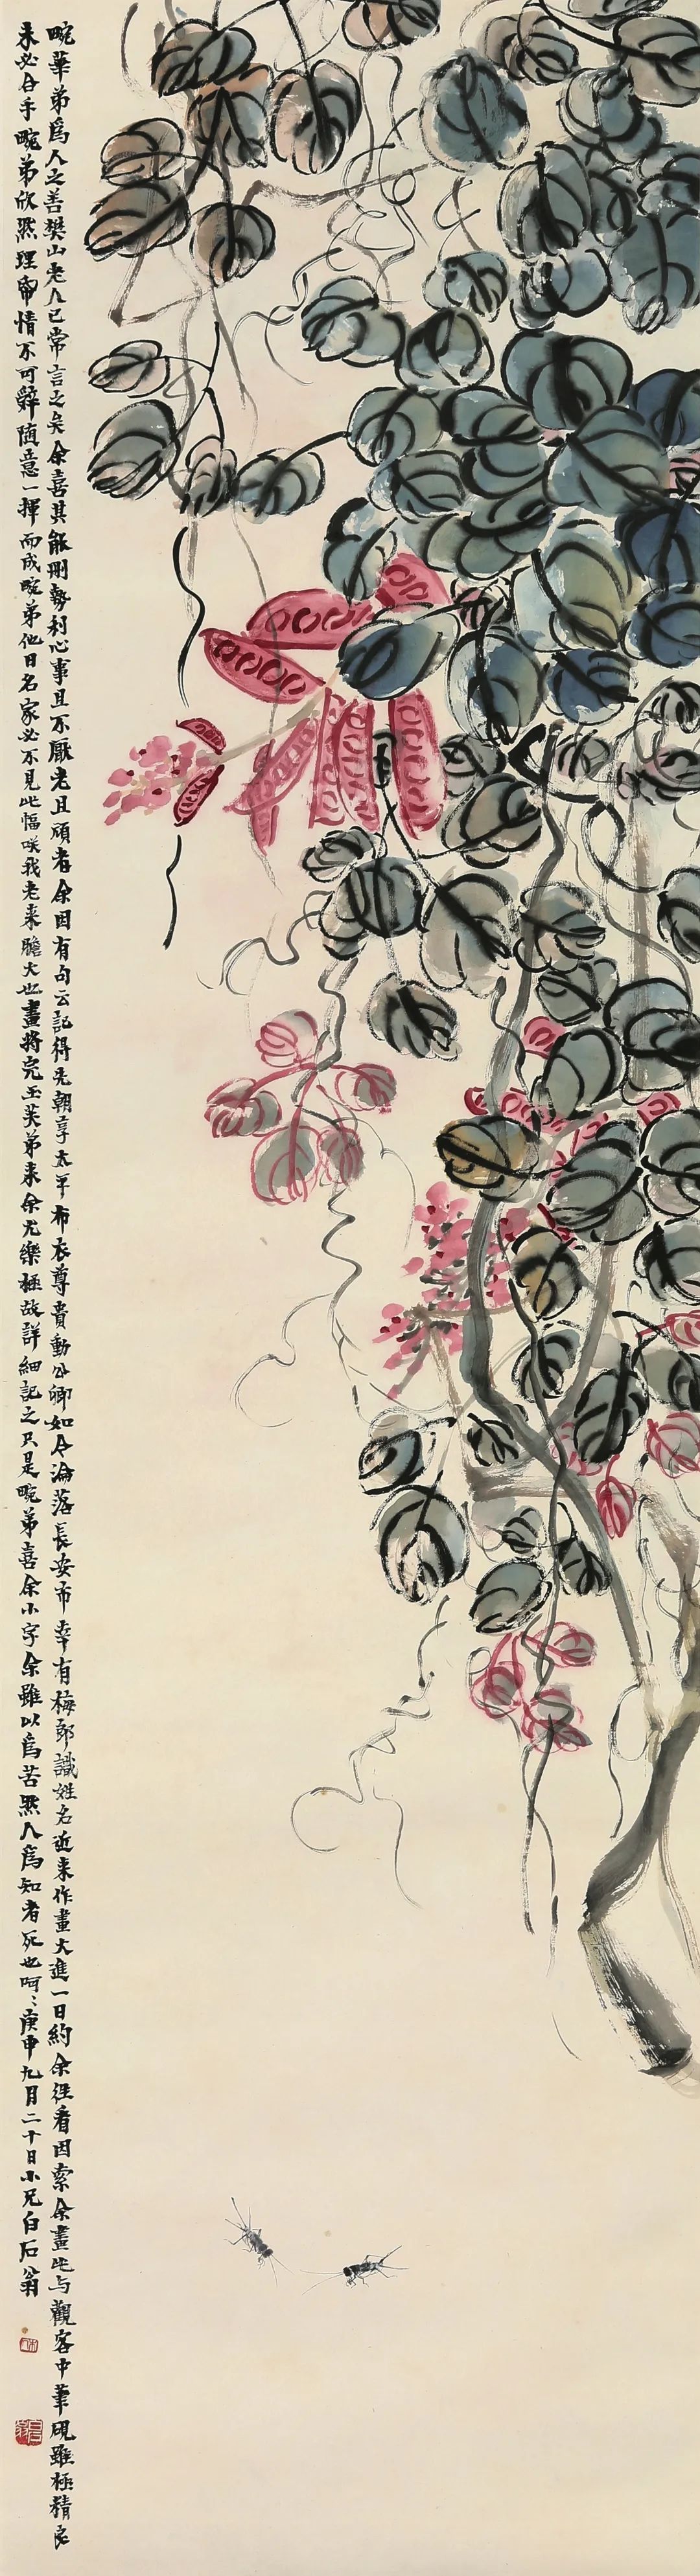 畹華弟爲人之善樊山老人已常言之矣余喜其能刪勢利心事且不厭老且頑者余因有句云記得先朝享太平布衣尊貴動公卿如今淪落長安市幸有梅郎識姓名近來作畫大進一日約余往看因索余畫此与觀客中筆硯雖極精良
未必合手畹弟欣然理電情不可辭随意一揮而成畹弟他日名家必不見此幅咲我老來膽大也畫將完玉芙弟來余尤樂極故詳細記之只是畹弟喜余小字余雖以爲苦然人爲知者死也呵〻庚申九月二十日小兄白石翁